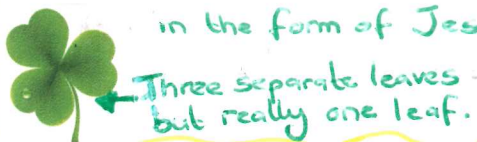 in the form of Jes
Three separate leaves
but really one leaf.